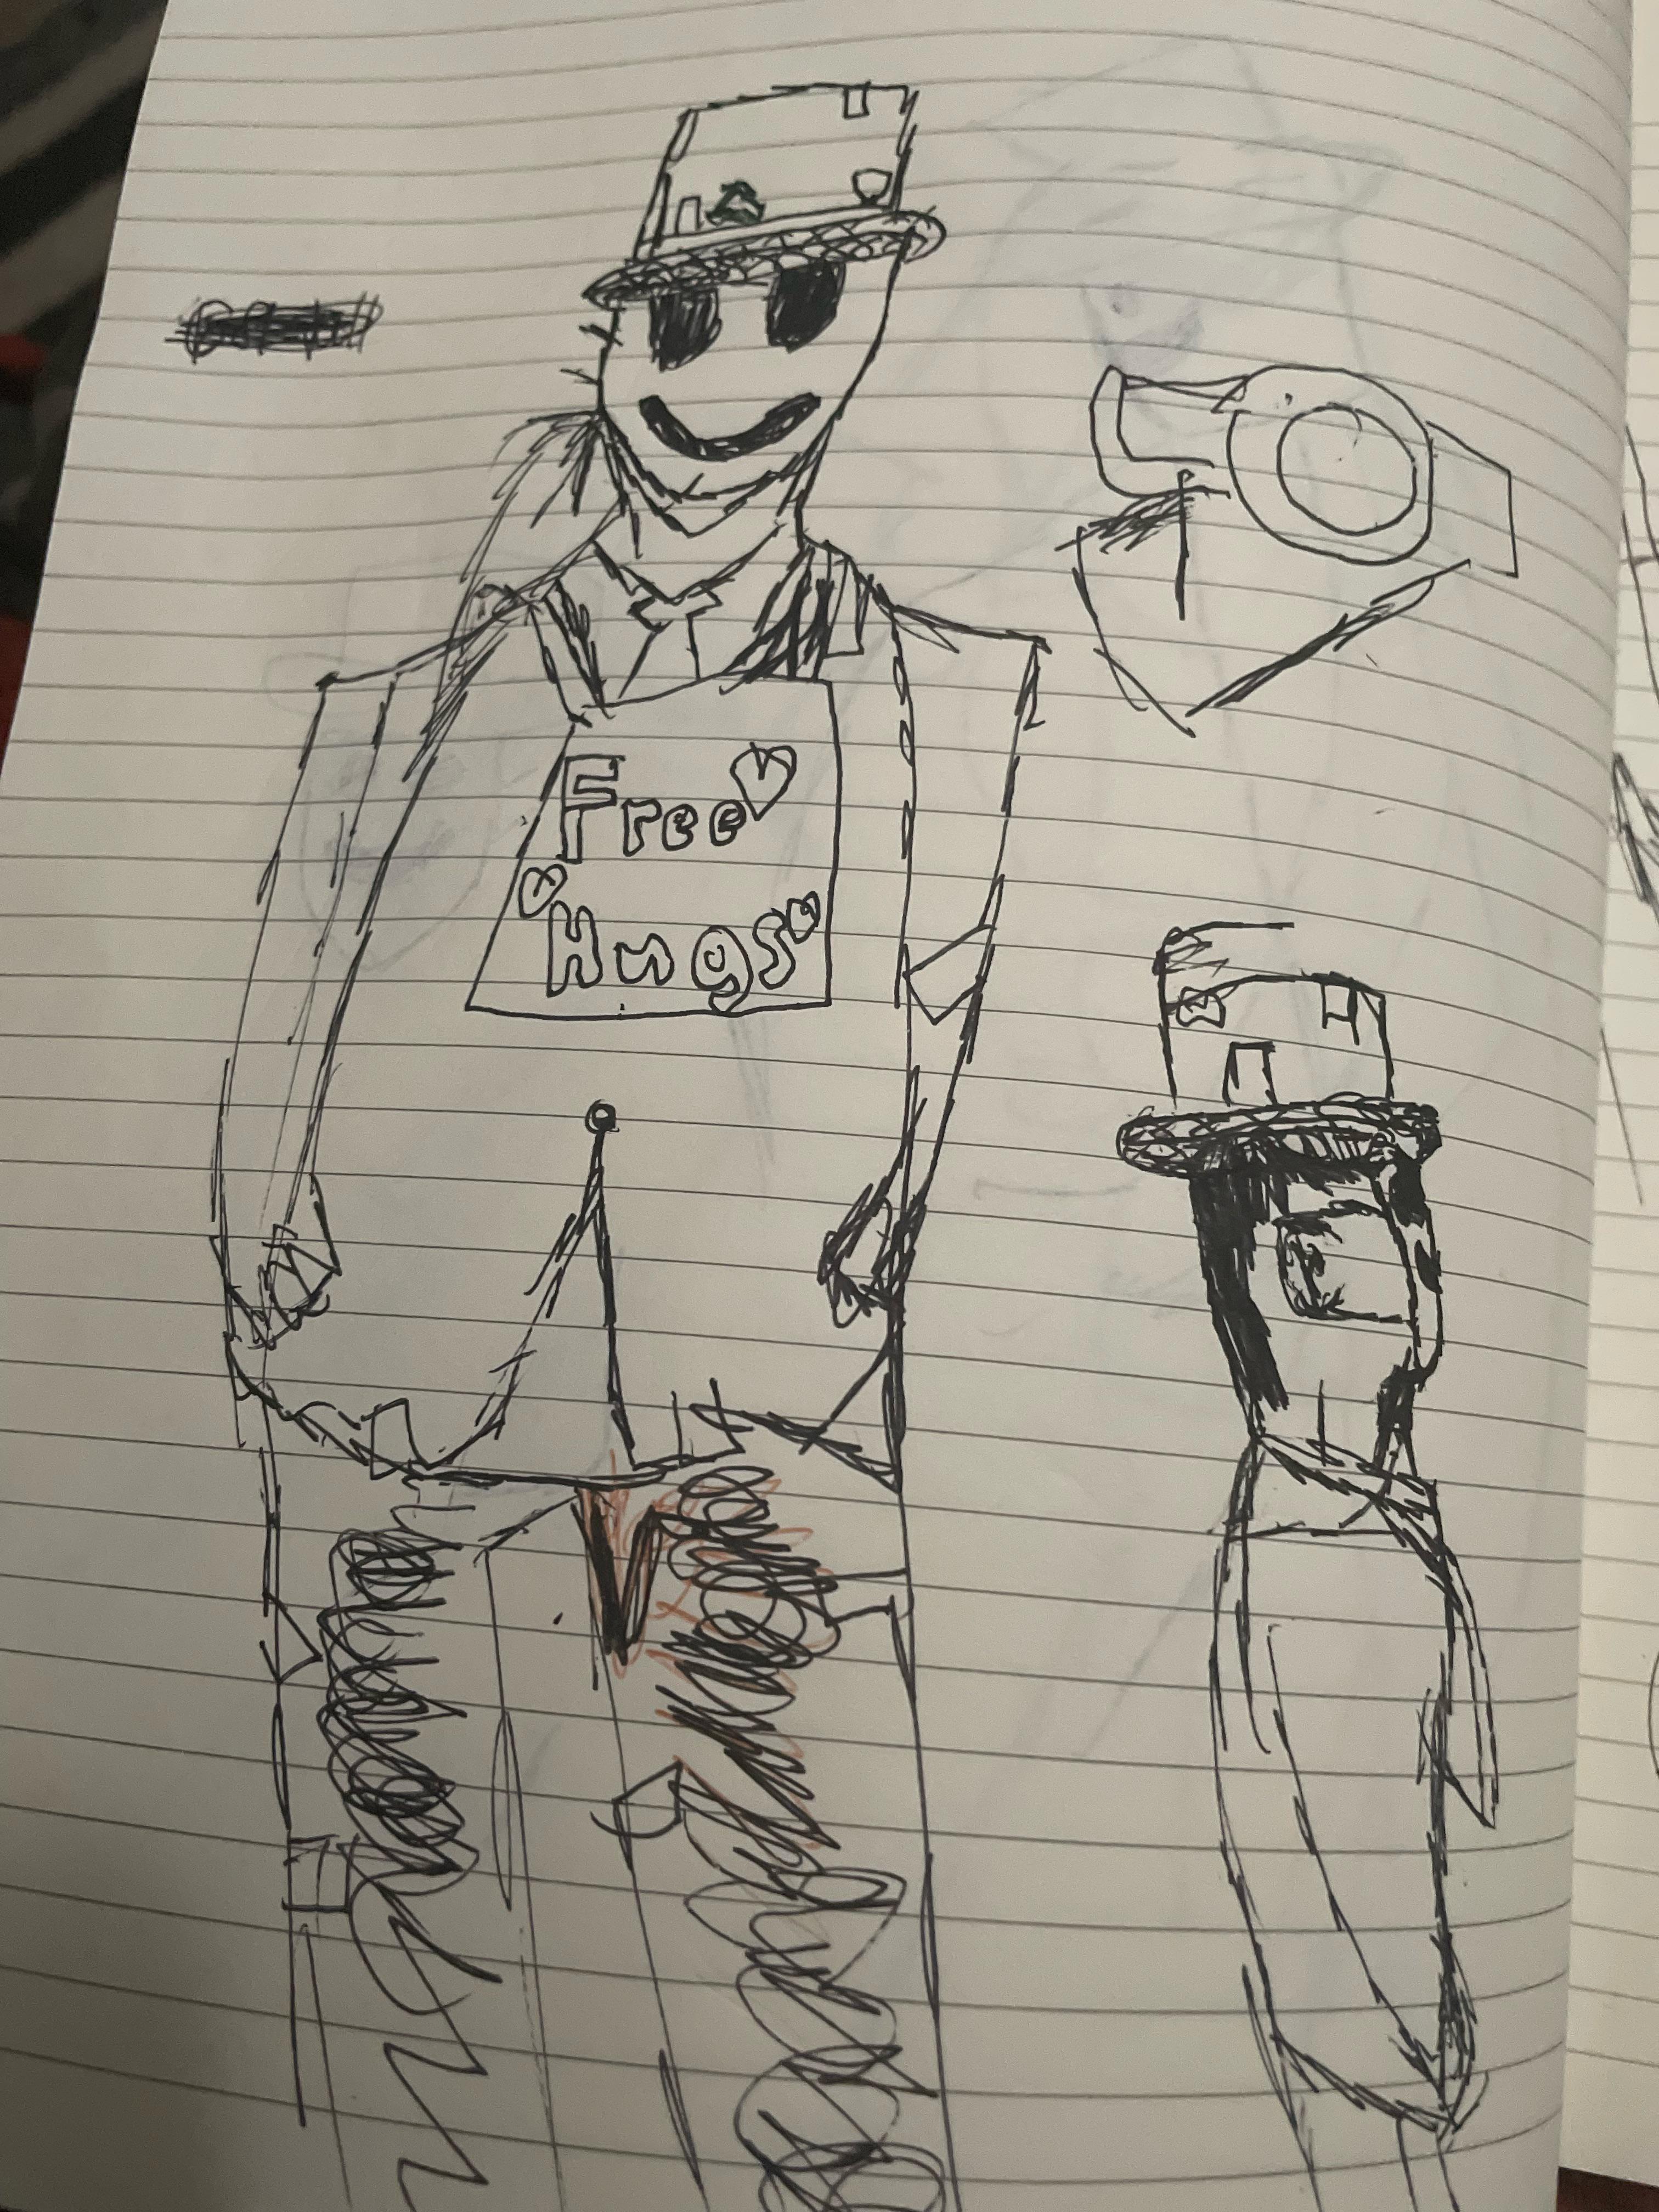 Free
Hugs